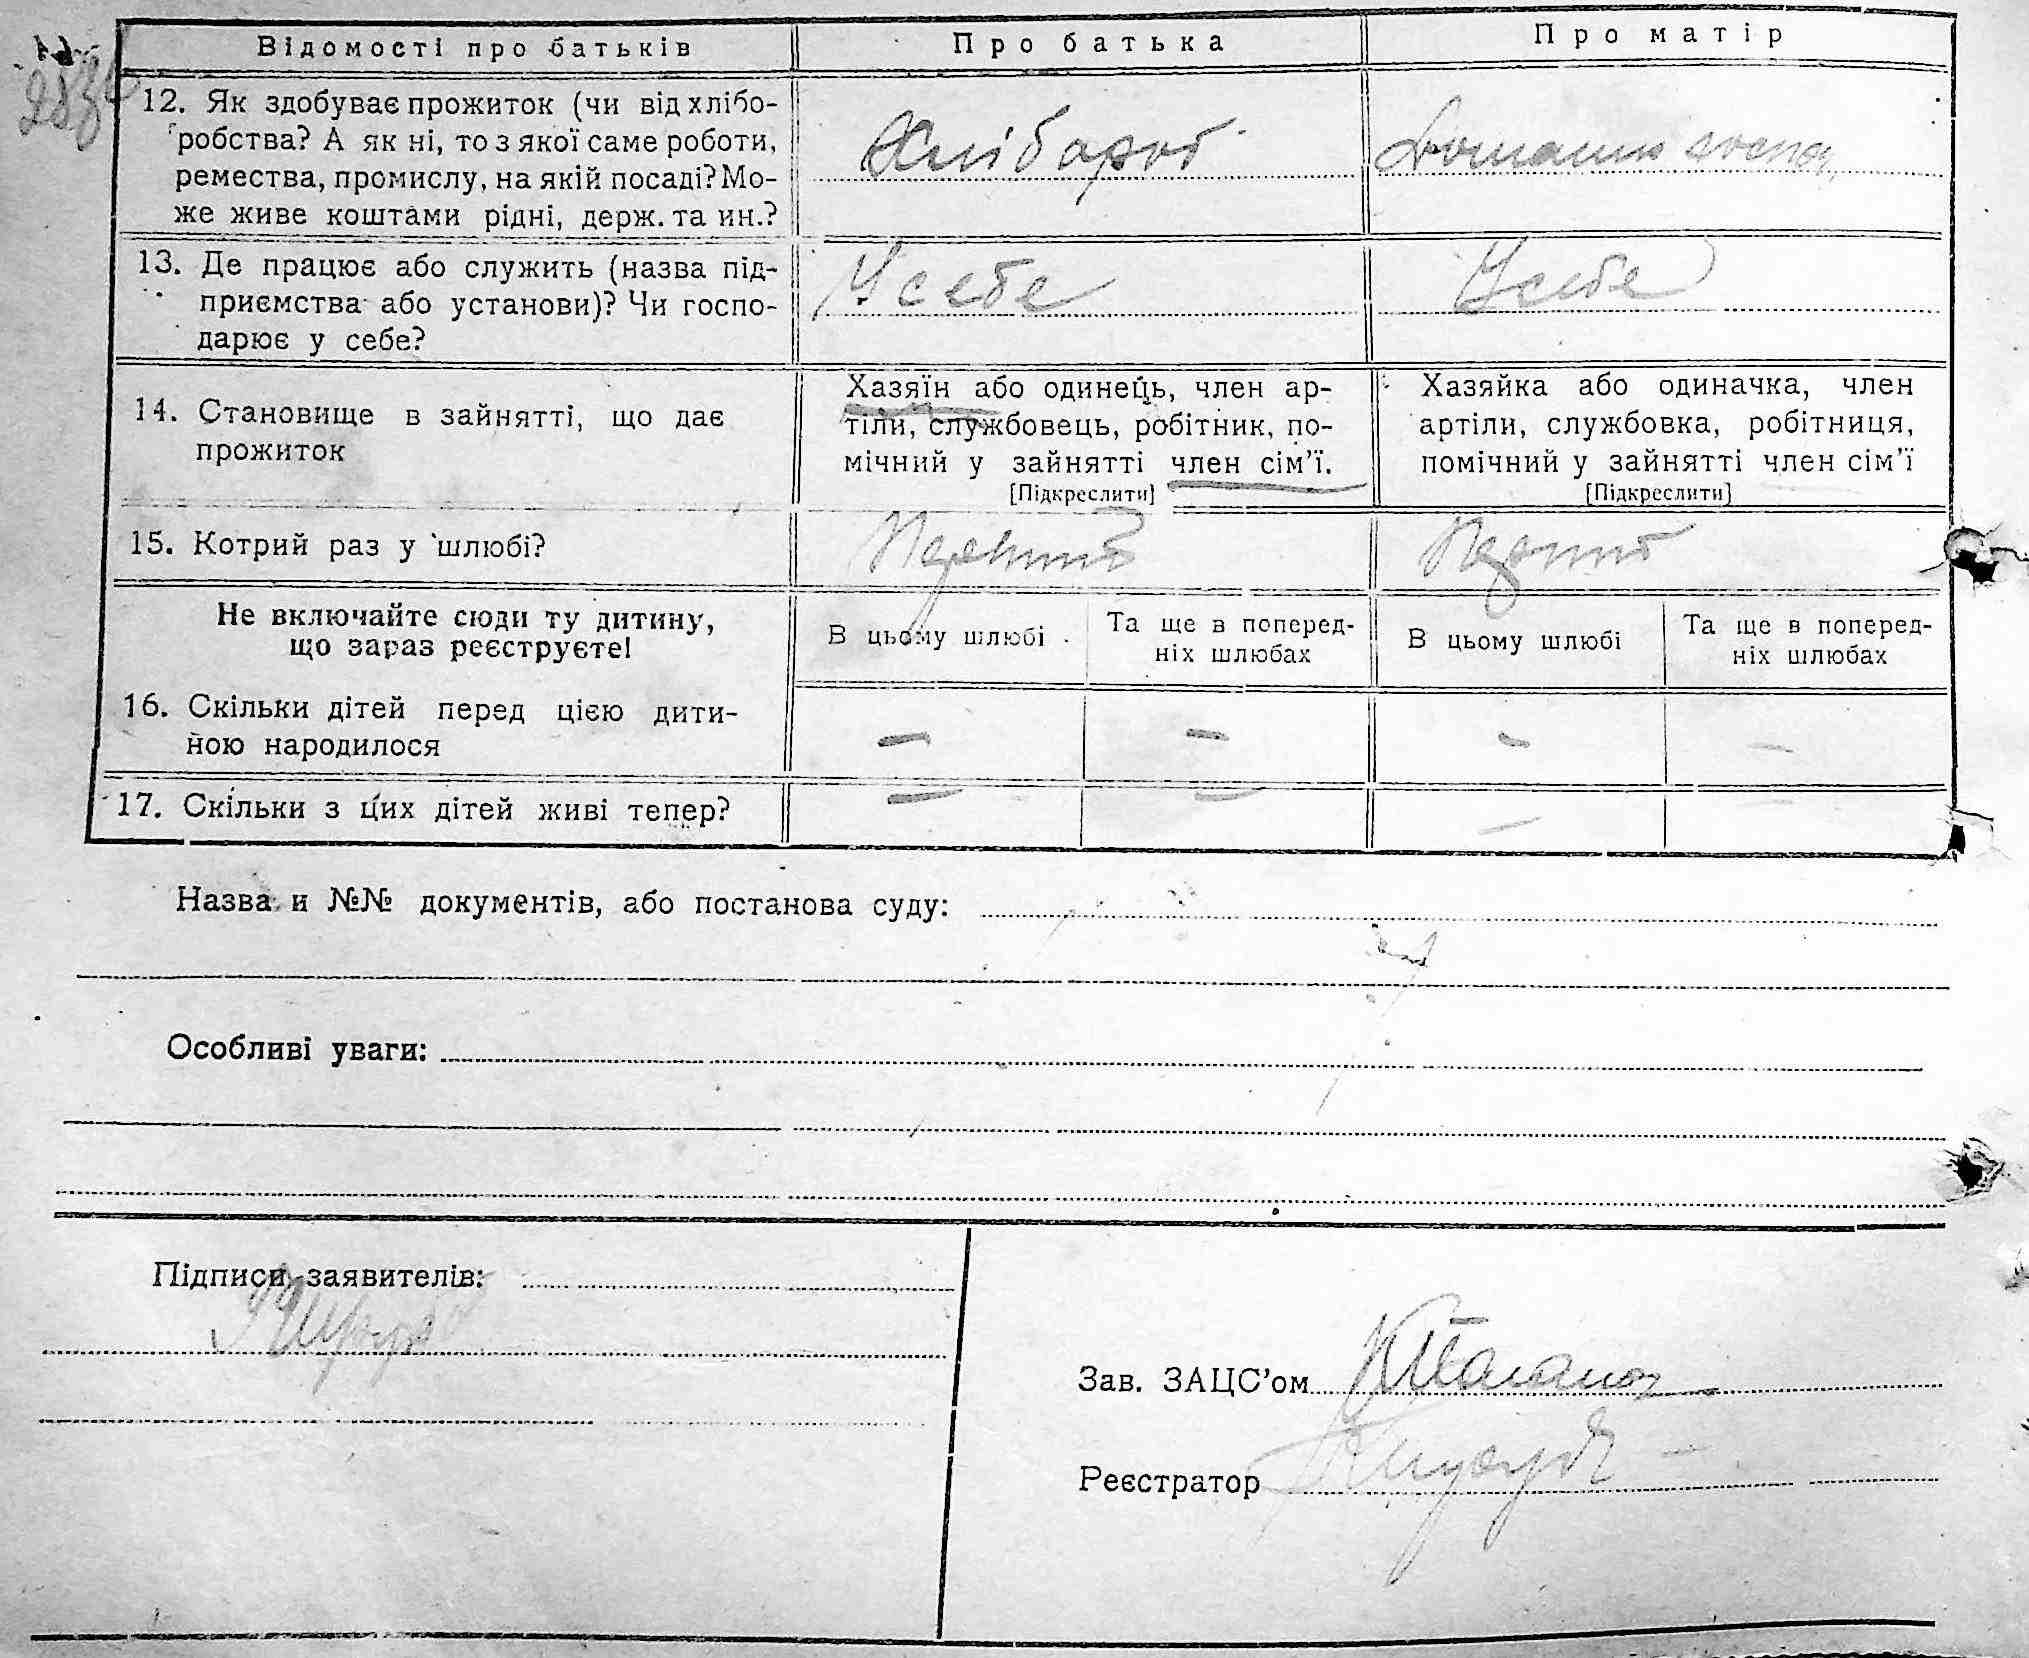 Відомості про батьків
Про батька
Про матір
12. Як здобуває прожиток (чи від хлібо-
робства? А як ні, то з якої саме роботи,
ремества, промислу, на якій посаді? Мо-
же живе коштами рідні, держ. та ин.?
Хлібороб
Домашня господ
13. Де працює або служить (назва під-
приємства або установи)? Чи госпо-
дарює у себе?
У себе
У себе
14. Становище в зайнятті, що дає
прожиток
Хазяїн або одинець, член ар-
тіли, службовець, робітник, по-
мічний у зайнятті член сім'ї.
[Підкреслити]
Хазяйка або одиначка, член
артіли, службовка, робітниця,
помічний у зайнятті член сім'ї
[Підкреслити]
15. Котрий раз у шлюбі?
Не включайте сюди ту дитину,
що зараз реєструєте!
В цьому шлюбі
Та ще в поперед-
ніх шлюбах
В цьому шлюбі
Та ще в поперед-
ніх шлюбах
16. Скільки дітей перед цією дити-
ною народилося
— — — —
17. Скільки з цих дітей живі тепер?
— — — —
Назва и №№ документів, або постанова суду:
Особливі уваги:
Підписи заявителів:
Зав. ЗАЦС'ом
Реєстратор